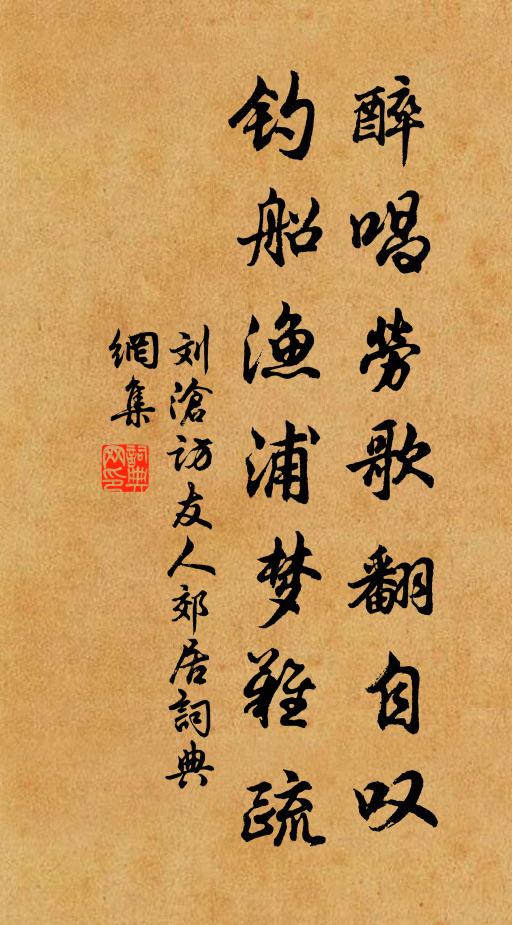 醉唱劳歌翻自叹
钓船渔浦梦难疏
刘滄访友人郊居詞典
網集
詞典
网印